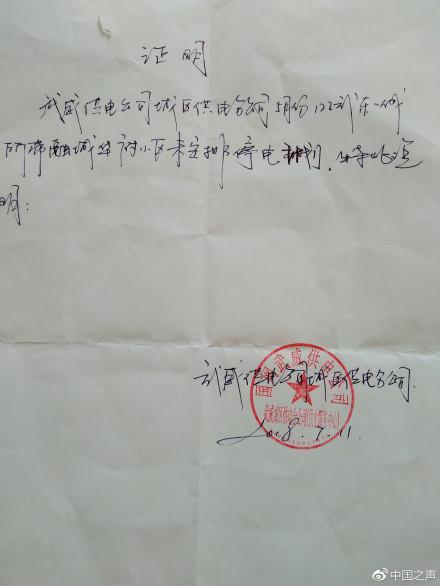 证明
武威供电公司城区供电分公司5月份122武东一线
所带融城华府小区未安排停电计划。特此证
明:
武威供电公司城区供电分公司
2018.7.11
武威供电公司
中国之声